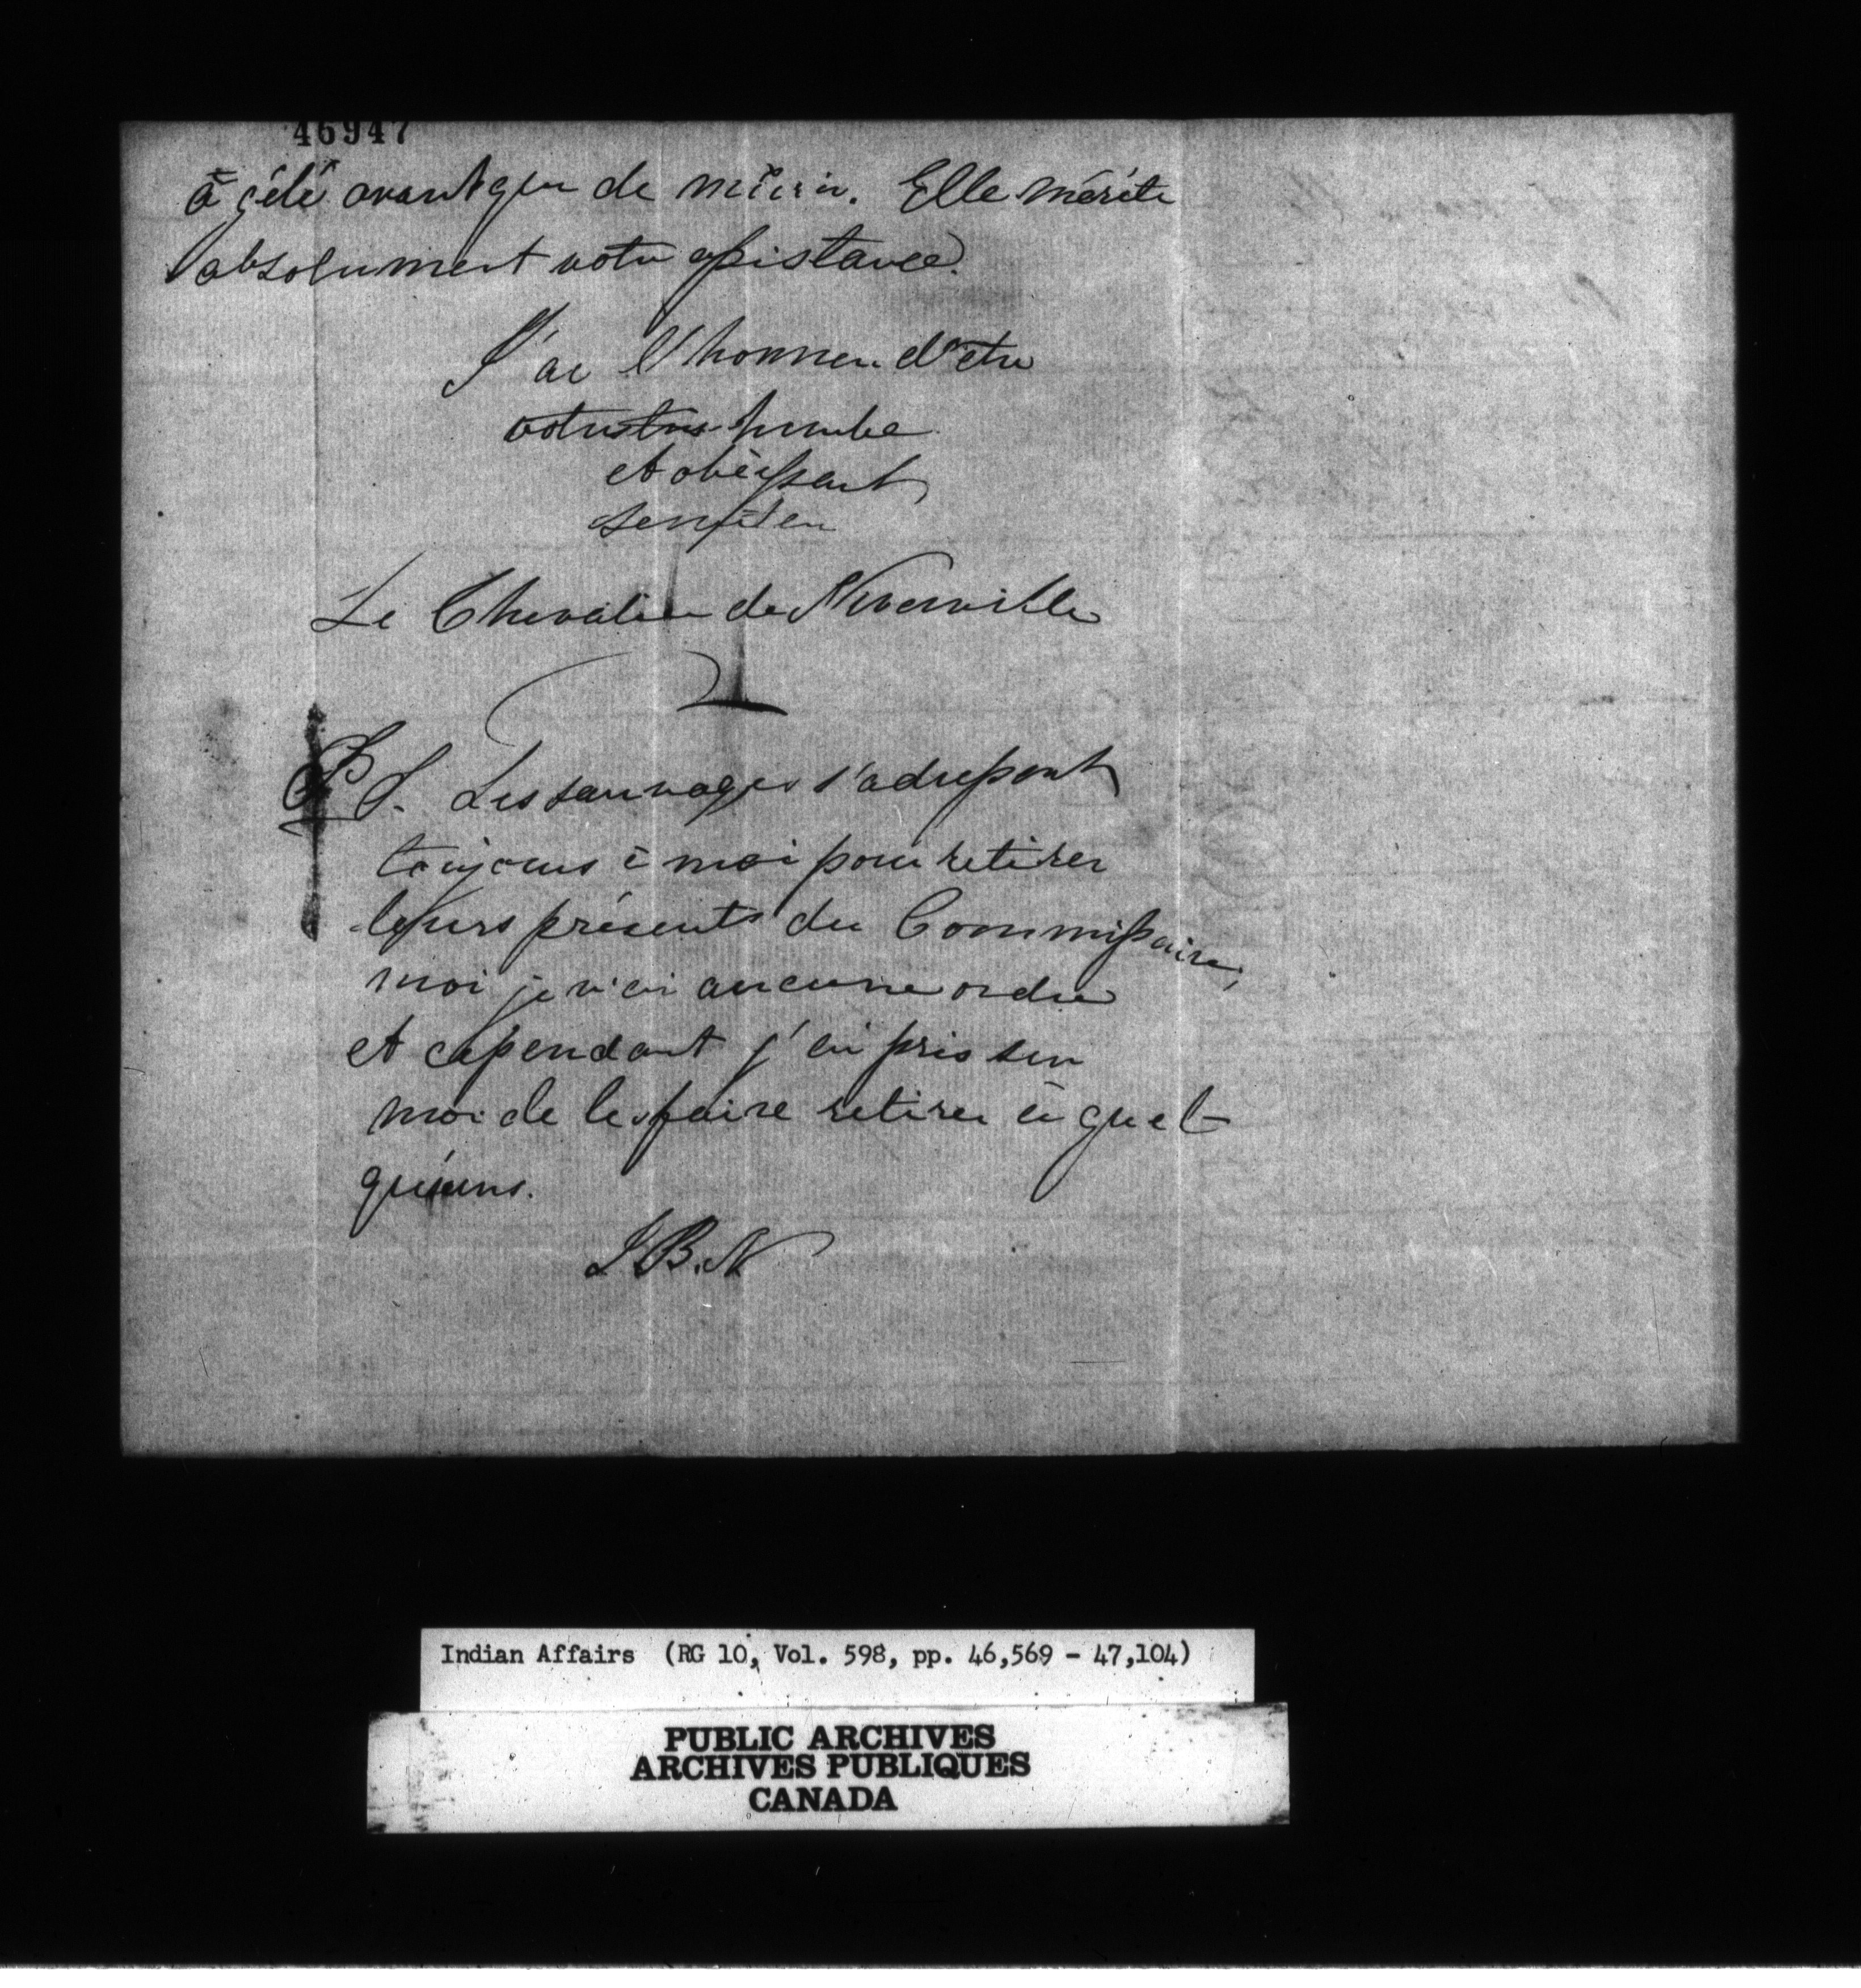 46947
a gélé avant que de mourir. Elle mérite
absolument votre assistance.
J'ai l'honneur d'etre
votre tres humbe
et obéissant
serviteur
Le Chevalier de Niverville
P S. Les sauvages s'adressent
toujours à moi pour retirer
leurs présents du Commissaire,
moi je n'ai aucune ordre
et cependant j'ai pris sur
moi de les faire retirer à quel-
qu'uns.
J B. N
Indian Affairs (RG 10, Vol. 598, pp. 46,569 - 47,104)
PUBLIC ARCHIVES
ARCHIVES PUBLIQUES
CANADA